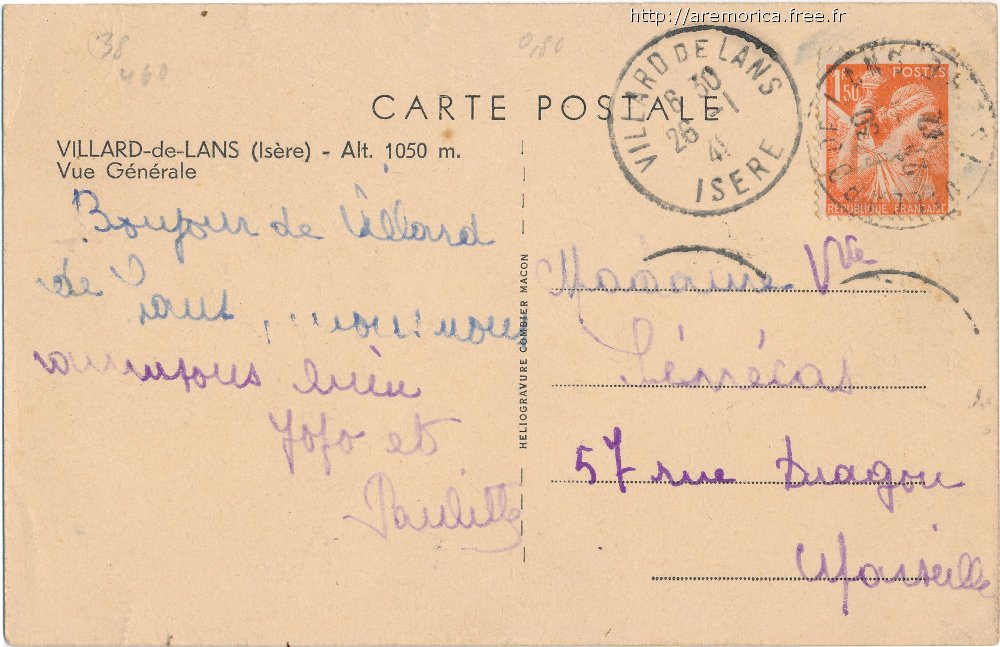 http://aremorica.free.fr
38
460
0,80
CARTE POSTALE
VILLARD-de-LANS (Isère) - Alt. 1050 m.
Vue Générale
VILLARD DE LANS
ISERE
POSTES
1,50
REPUBLIQUE FRANCAISE
Bonjour de Villard
de Lans, nous nous
amusons bien
Jojo et
Paulette
HELIOGRAVURE COMBIER MACON
Madame Vve
57 rue Dragon
Marseille